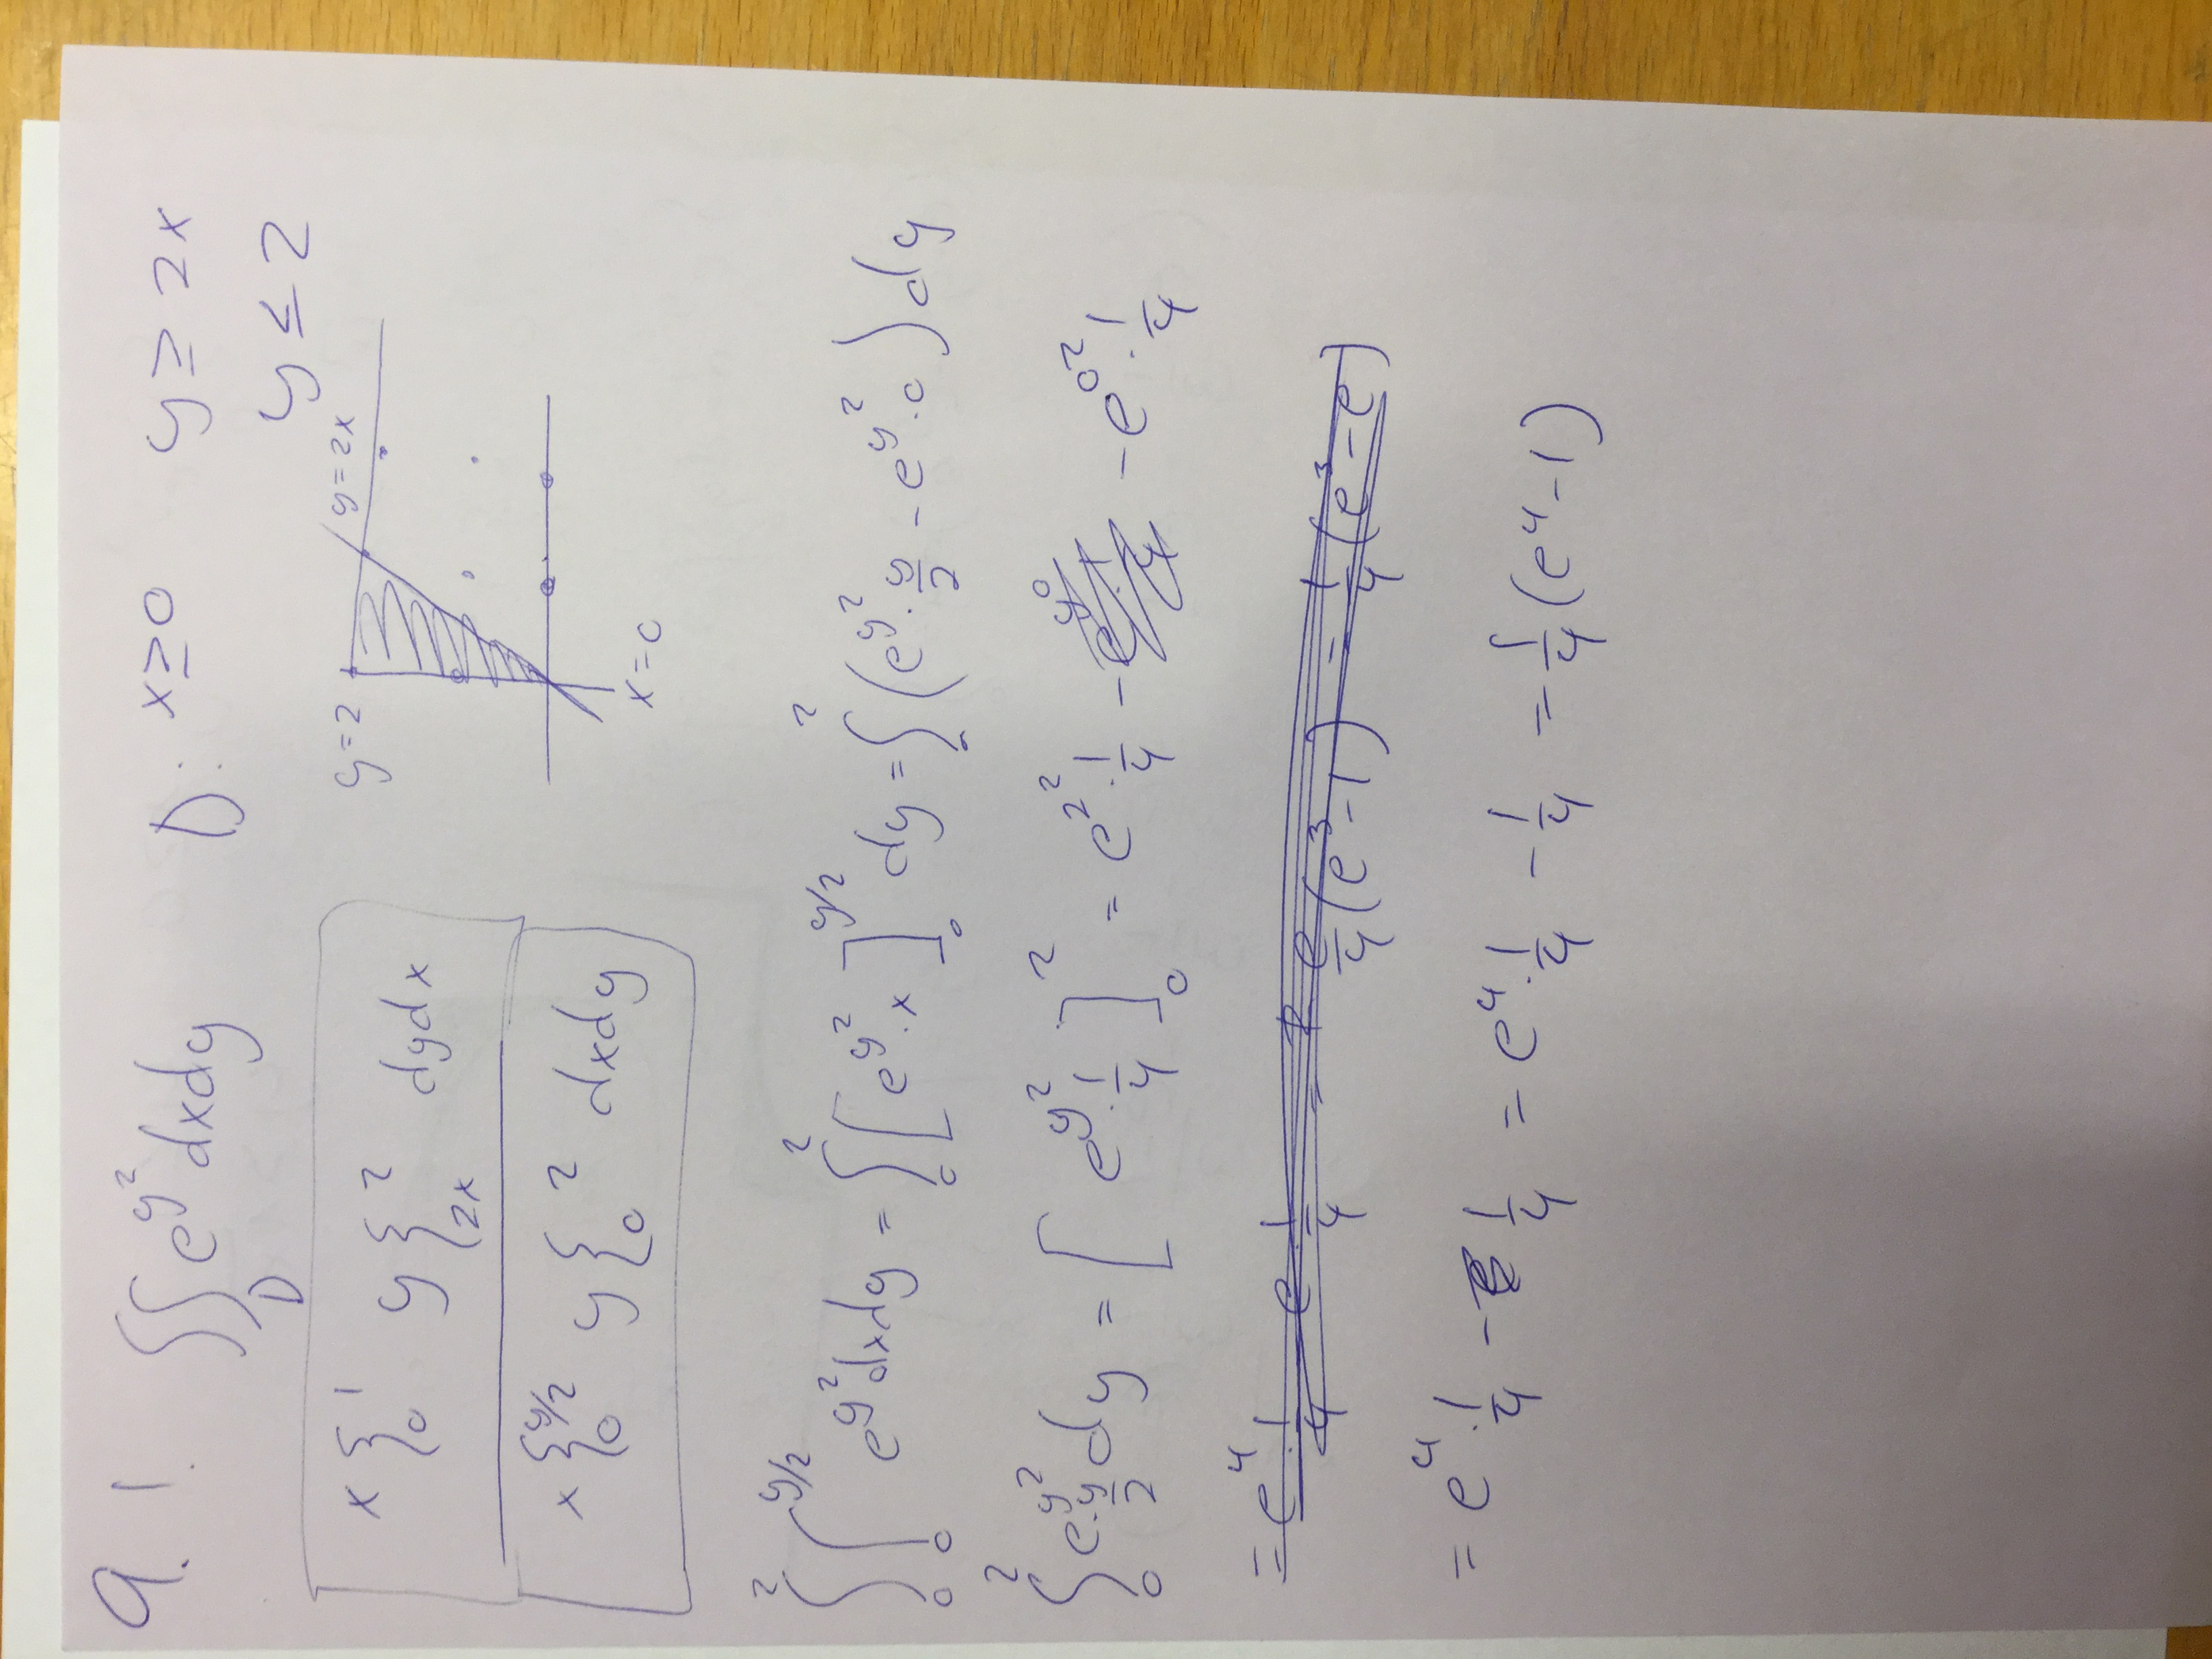 9. 1. ∬_D e^{y²} dxdy D: x ≥ 0 y ≥ 2x
y ≤ 2
x {_0^1 y {_{2x}^2 dydx
y=2 y=2x
x {_0^{y/2} y {_0^2 dxdy
x=0
∫_0^2 ∫_0^{y/2} e^{y²} dxdy = ∫_0^2 [e^{y²}·x]_0^{y/2} dy = ∫_0^2 (e^{y²}·y/2 - e^{y²}·0) dy
∫_0^2 e^{y²}·y/2 dy = [e^{y²}·1/4]_0^2 = e^{2²}·1/4 - e^{0²}·1/4
= e^4·1/4 - e·1/4 = e/4(e³-1) = 1/4(e³-e)
= e^4·1/4 - 1/4 = e^4·1/4 - 1/4 = 1/4(e^4-1)